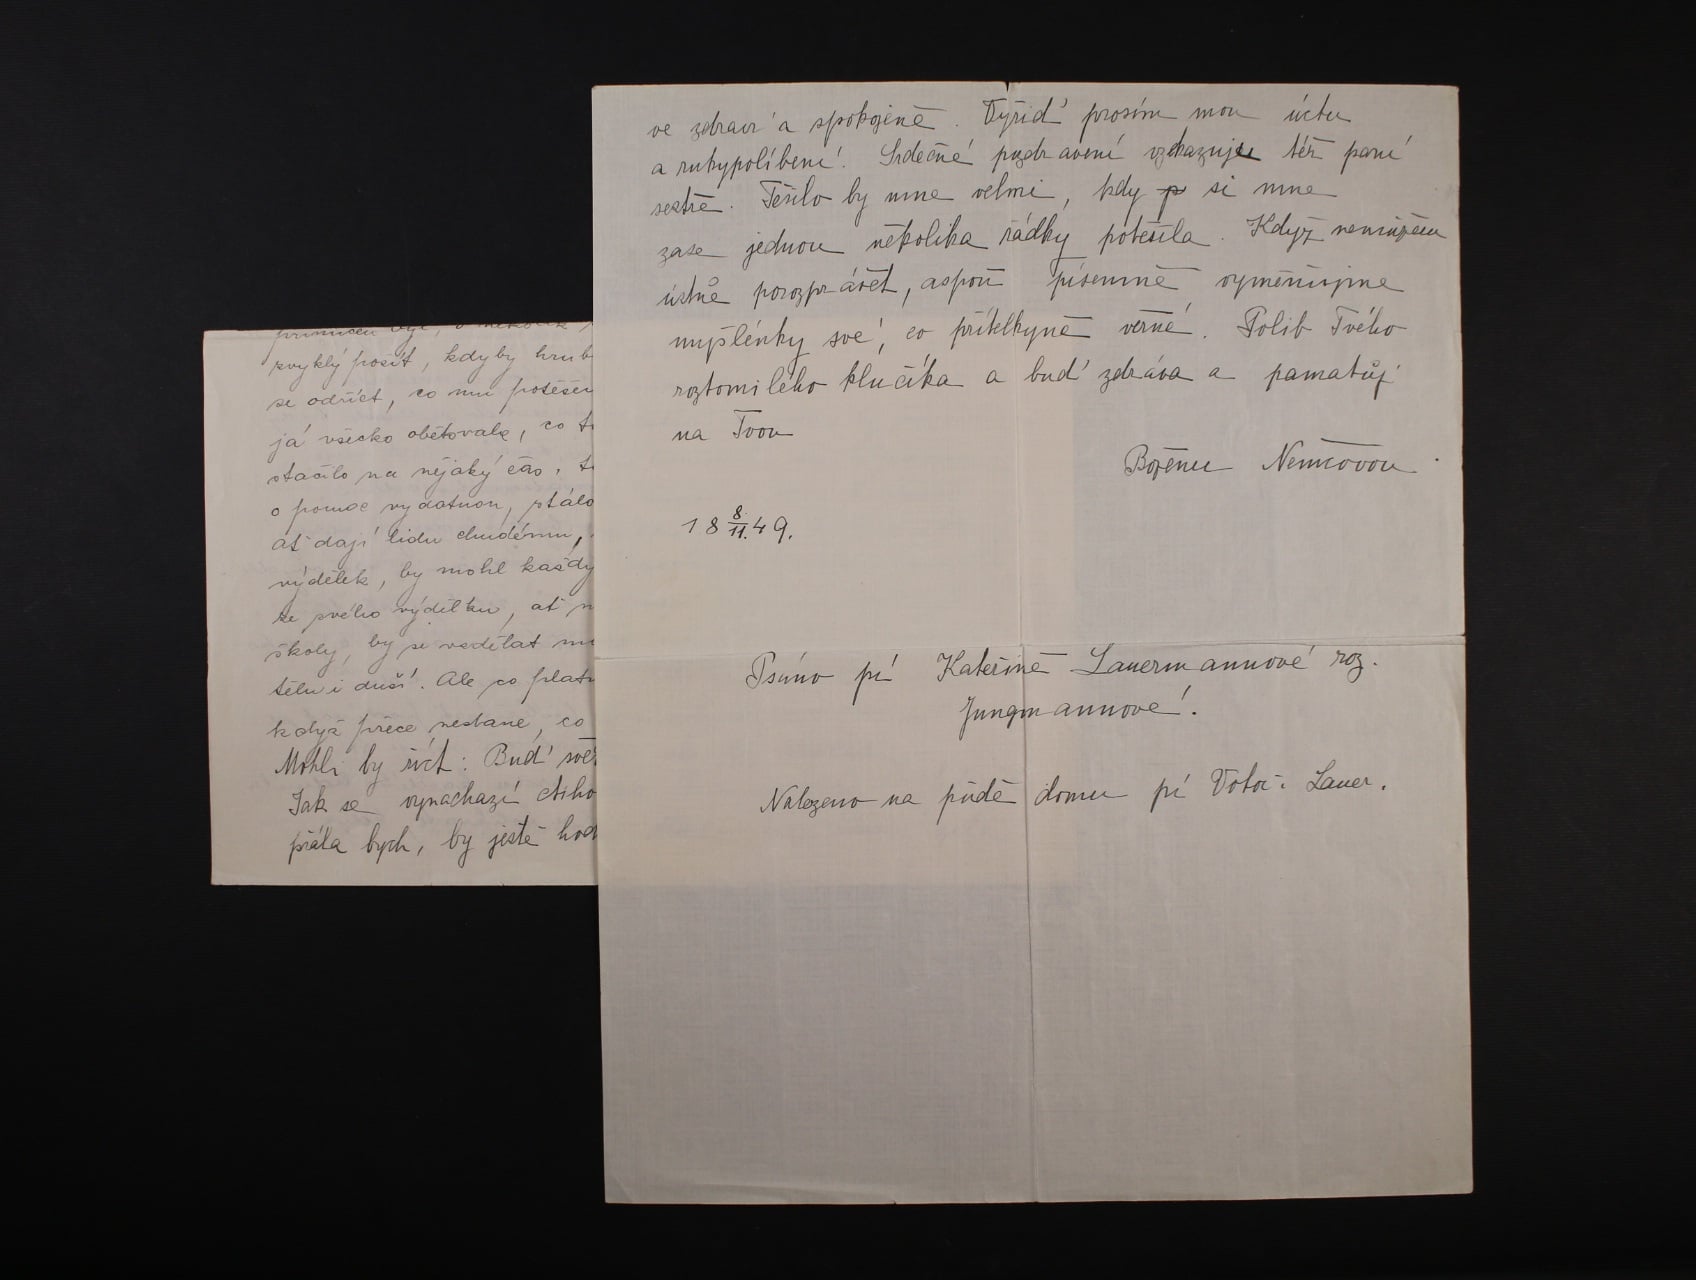 přinucen býti, o několik
zvyklý pošít, kdyby hrub
se odříct, co mu potěšen
já všecko obětovala, co t
stačilo na nějaký čas, t
o pomoc vydatnou, ptálo
ať dají lidu chudému,
výdělek, by mohl každý
ze svého výdělku, ať n
školy, by se vzdělat m
tělu i duši. Ale co platn
když přece nestane, co
Mohli by říct: Buď svět
Jak se vynachází ctiho
přála bych, by ještě hod
ve zdraví a spokojeně. Vyřiď prosím mou úctu
a rukypolíbení. Srdečné pozdravení vzkazuju též paní
sestře. Těšilo by mne velmi, kdy p si mne
zase jednou několika řádky potěšila. Když nemůžem
ústně porozprávět, aspoň písemně vyměňujme
myšlénky své, co přítelkyně věrné. Polib Tvého
roztomilého klučíka a buď zdráva a pamatůj
na Tvou
Boženu Němcovou.
18 8./11. 49.
Psáno pí Kateřině Lauermannové roz.
Jungmannové.
Nalezeno na půdě domu pí Lauer.